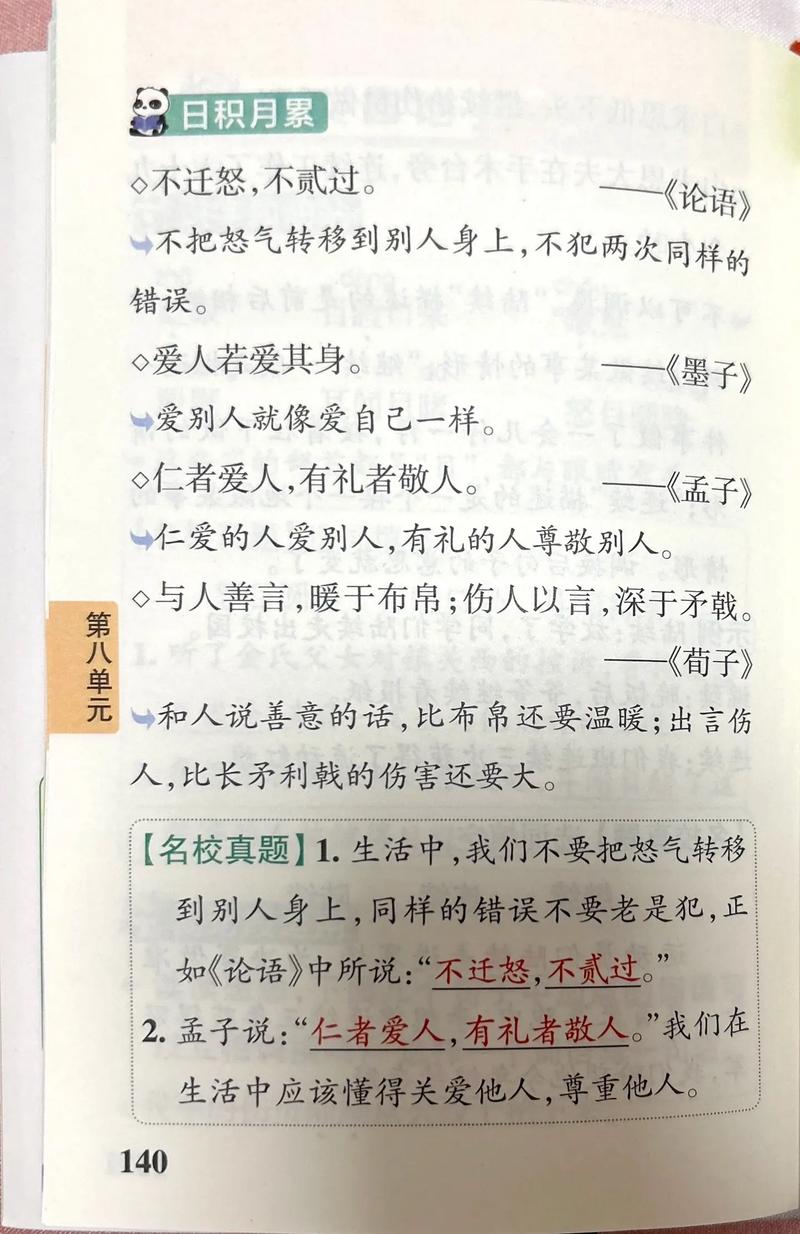 日积月累
◇不迁怒,不贰过。 ——《论语》
不把怒气转移到别人身上,不犯两次同样的
错误。
◇爱人若爱其身。 ——《墨子》
爱别人就像爱自己一样。
◇仁者爱人,有礼者敬人。 ——《孟子》
仁爱的人爱别人,有礼的人尊敬别人。
◇与人善言,暖于布帛;伤人以言,深于矛戟。
——《荀子》
和人说善意的话,比布帛还要温暖;出言伤
人,比长矛利戟的伤害还要大。
第八单元
【名校真题】1. 生活中,我们不要把怒气转移
到别人身上,同样的错误不要老是犯,正
如《论语》中所说:“不迁怒,不贰过。”
2. 孟子说:“仁者爱人,有礼者敬人。”我们在
生活中应该懂得关爱他人,尊重他人。
140